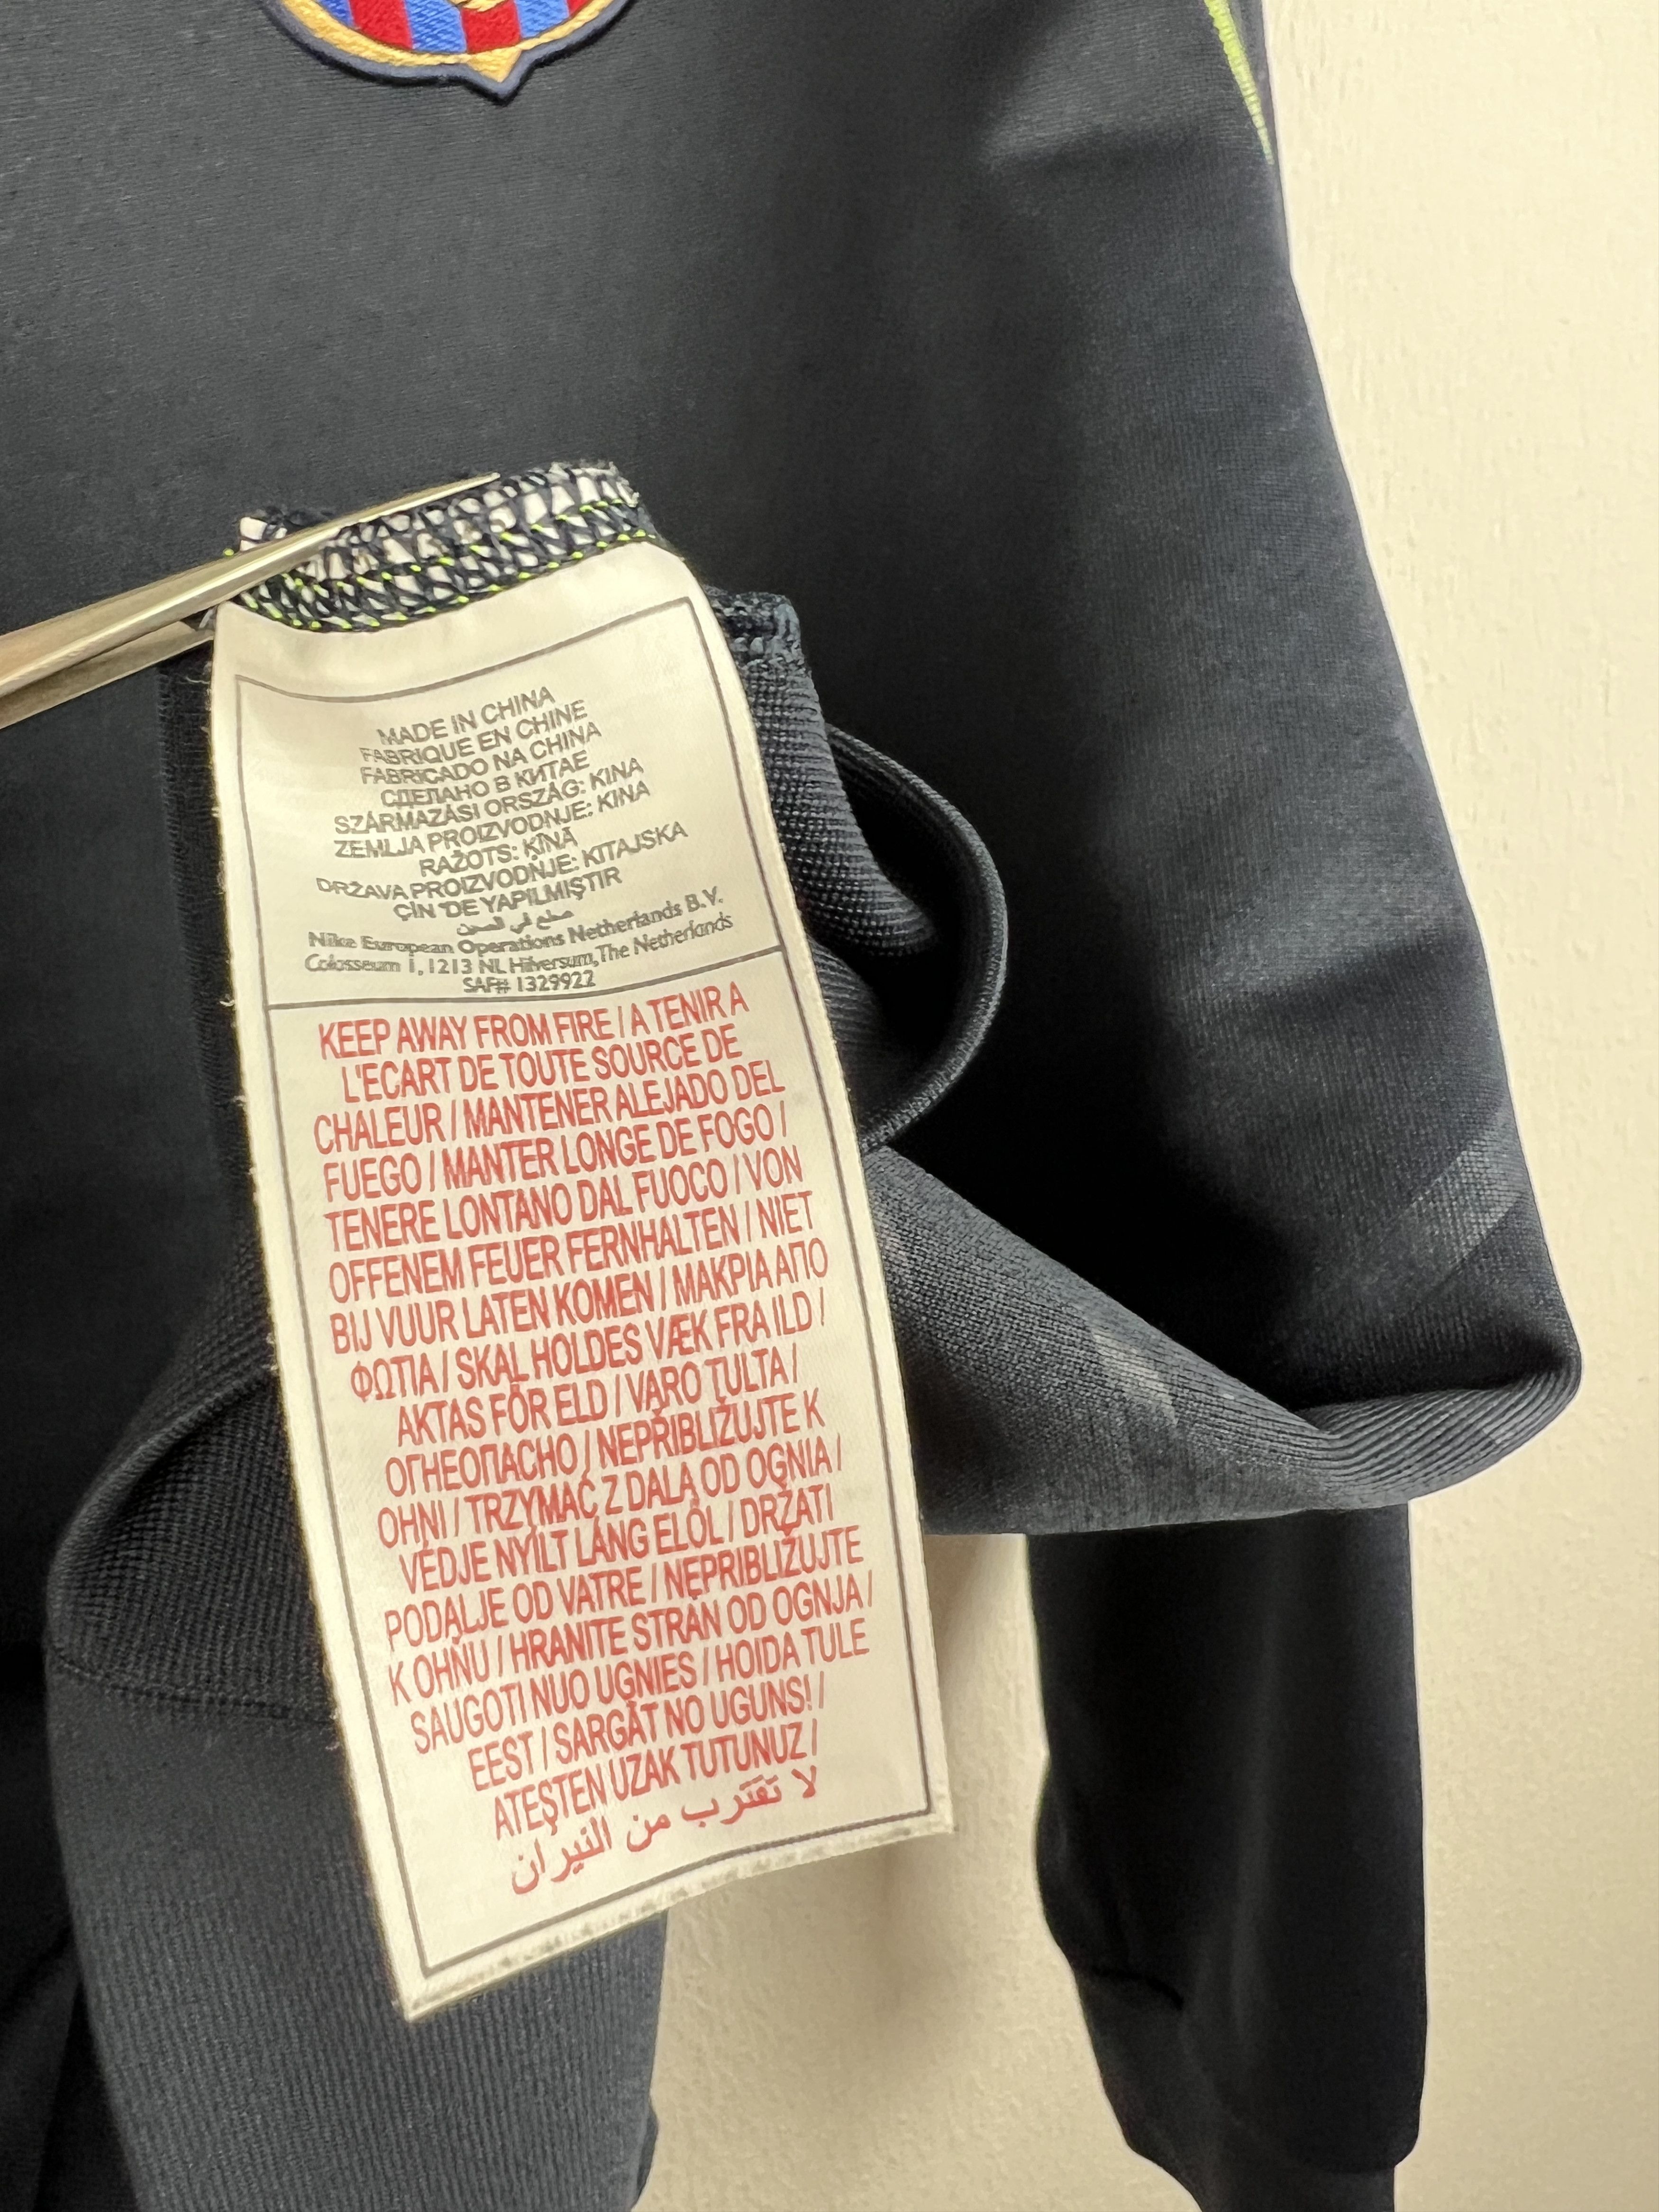 MADE IN CHINA
FABRIQUE EN CHINE
FABRICADO NA CHINA
СДЕЛАНО В КИТАЕ
SZÁRMAZÁSI ORSZÁG: KINA
ZEMLJA PROIZVODNJE: KINA
RAŽOTS: ĶĪNĀ
DRŽAVA PROIZVODNJE: KITAJSKA
ÇİN 'DE YAPILMIŞTIR
صنع في الصين
Nike European Operations Netherlands B.V.
Colosseum 1, 1213 NL Hilversum, The Netherlands
SAF# 1329922
KEEP AWAY FROM FIRE / A TENIR A
L'ECART DE TOUTE SOURCE DE
CHALEUR / MANTENER ALEJADO DEL
FUEGO / MANTER LONGE DE FOGO /
TENERE LONTANO DAL FUOCO / VON
OFFENEM FEUER FERNHALTEN / NIET
BIJ VUUR LATEN KOMEN / ΜΑΚΡΙΑ ΑΠΟ
ΦΩΤΙΑ / SKAL HOLDES VÆK FRA ILD /
AKTAS FÖR ELD / VARO TULTA /
ОГНЕОПАСНО / NEPŘIBLIŽUJTE K
OHNI / TRZYMAĆ Z DALA OD OGNIA /
VÉDJE NYÍLT LÁNG ELÖL / DRŽATI
PODALJE OD VATRE / NEPRIBLIŽUJTE
K OHŇU / HRANITE STRAN OD OGNJA /
SAUGOTI NUO UGNIES / HOIDA TULE
EEST / SARGĀT NO UGUNS! /
ATEŞTEN UZAK TUTUNUZ /
لا تقترب من النيران